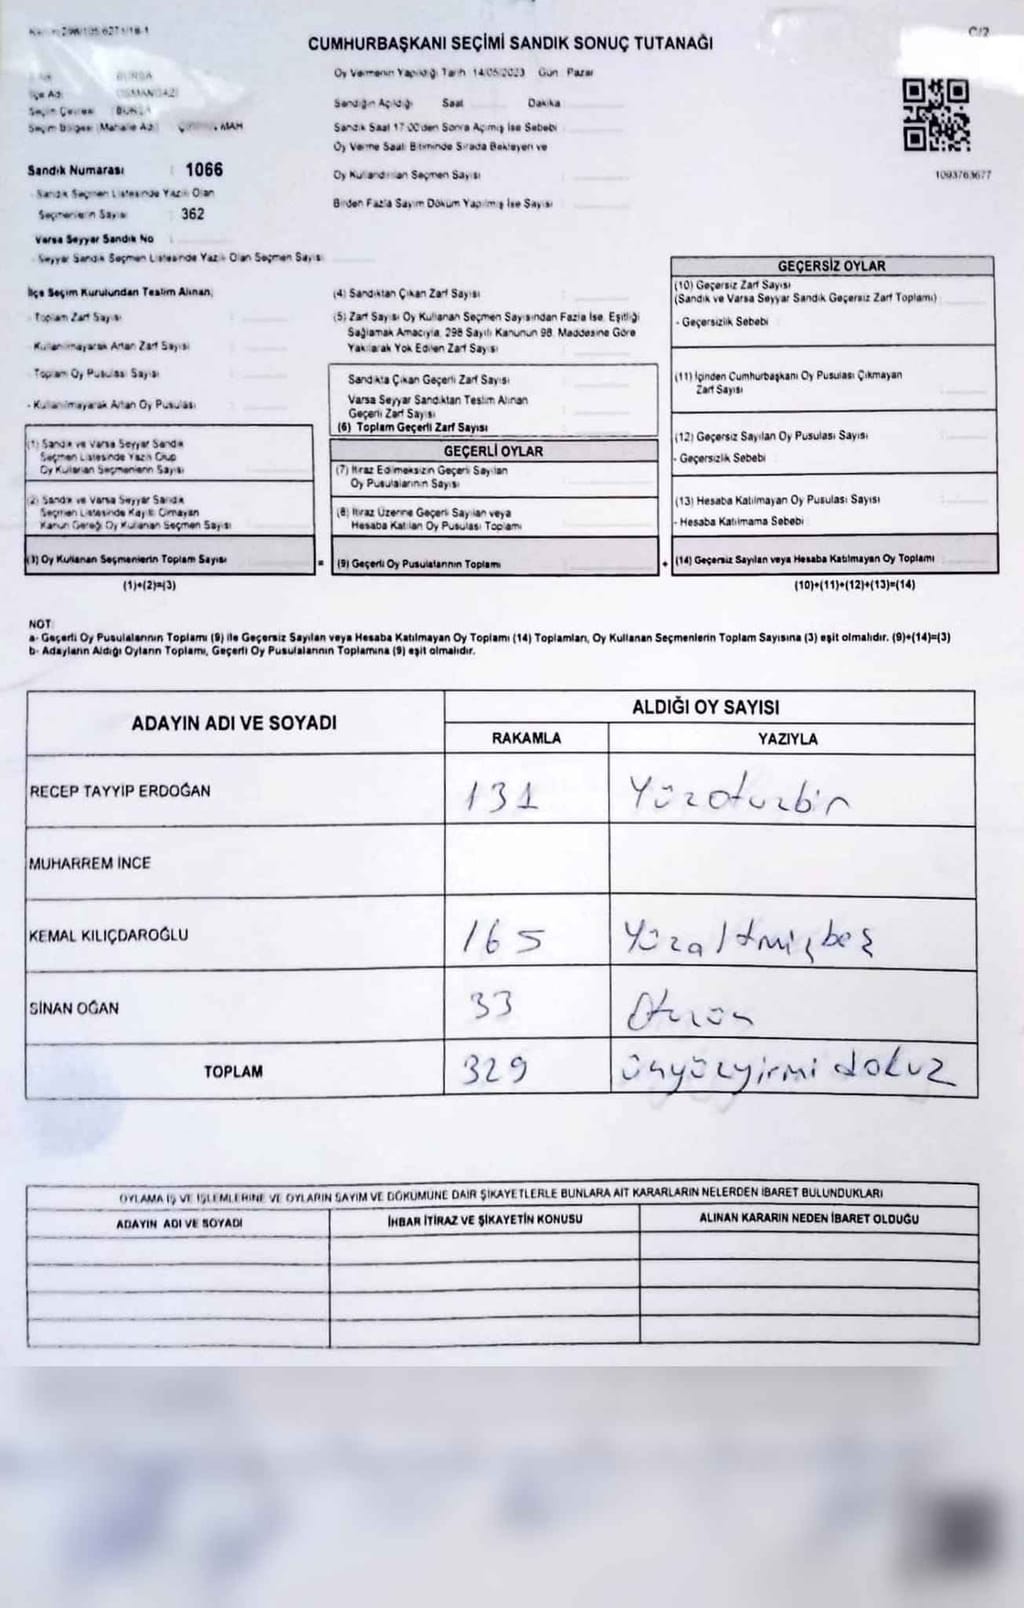 C/2
CUMHURBAŞKANI SEÇİMİ SANDIK SONUÇ TUTANAĞI
BURSA
İlçe Adı OSMANGAZİ
Seçim Çevresi BURSA
Seçim Bölgesi (Mahalle Adı) MAH
Sandık Numarası : 1066
Sandık Seçmen Listesinde Yazılı Olan
Seçmenlerin Sayısı : 362
Varsa Seyyar Sandık No :
Seyyar Sandık Seçmen Listesinde Yazılı Olan Seçmen Sayısı
Oy Vermenin Yapıldığı Tarih 14/05/2023 Gün Pazar
Sandığın Açıldığı Saat Dakika
Sandık Saat 17.00'den Sonra Açılmış İse Sebebi
Oy Verme Saati Bitiminde Sırada Bekleyen ve
Oy Kullandırılan Seçmen Sayısı
Birden Fazla Sayım Döküm Yapılmış İse Sayısı
1093763677
İlçe Seçim Kurulundan Teslim Alınan;
- Toplam Zarf Sayısı
- Kullanılmayarak Artan Zarf Sayısı
- Toplam Oy Pusulası Sayısı
- Kullanılmayarak Artan Oy Pusulası
(1) Sandık ve Varsa Seyyar Sandık
Seçmen Listesinde Yazılı Olup
Oy Kullanan Seçmenlerin Sayısı
(2) Sandık ve Varsa Seyyar Sandık
Seçmen Listesinde Kayıtlı Olmayan
Kanun Gereği Oy Kullanan Seçmen Sayısı
(3) Oy Kullanan Seçmenlerin Toplam Sayısı
(1)+(2)=(3)
(4) Sandıktan Çıkan Zarf Sayısı
(5) Zarf Sayısı Oy Kullanan Seçmen Sayısından Fazla İse, Eşitliği
Sağlamak Amacıyla, 298 Sayılı Kanunun 98. Maddesine Göre
Yakılarak Yok Edilen Zarf Sayısı
Sandıkta Çıkan Geçerli Zarf Sayısı
Varsa Seyyar Sandıktan Teslim Alınan
Geçerli Zarf Sayısı
(6) Toplam Geçerli Zarf Sayısı
GEÇERLİ OYLAR
(7) İtiraz Edilmeksizin Geçerli Sayılan
Oy Pusulalarının Sayısı
(8) İtiraz Üzerine Geçerli Sayılan veya
Hesaba Katılan Oy Pusulası Toplamı
= (9) Geçerli Oy Pusulalarının Toplamı
GEÇERSİZ OYLAR
(10) Geçersiz Zarf Sayısı
(Sandık ve Varsa Seyyar Sandık Geçersiz Zarf Toplamı)
- Geçersizlik Sebebi
(11) İçinden Cumhurbaşkanı Oy Pusulası Çıkmayan
Zarf Sayısı
(12) Geçersiz Sayılan Oy Pusulası Sayısı
- Geçersizlik Sebebi
(13) Hesaba Katılmayan Oy Pusulası Sayısı
- Hesaba Katılmama Sebebi
+ (14) Geçersiz Sayılan veya Hesaba Katılmayan Oy Toplamı
(10)+(11)+(12)+(13)=(14)
NOT:
a- Geçerli Oy Pusulalarının Toplamı (9) ile Geçersiz Sayılan veya Hesaba Katılmayan Oy Toplamı (14) Toplamları, Oy Kullanan Seçmenlerin Toplam Sayısına (3) eşit olmalıdır. (9)+(14)=(3)
b- Adayların Aldığı Oyların Toplamı, Geçerli Oy Pusulalarının Toplamına (9) eşit olmalıdır.
ADAYIN ADI VE SOYADI ALDIĞI OY SAYISI
RAKAMLA YAZIYLA
RECEP TAYYİP ERDOĞAN 131 Yüzotuzbir
MUHARREM İNCE
KEMAL KILIÇDAROĞLU 165 Yüzaltmışbeş
SİNAN OĞAN 33
TOPLAM 329 üçyüzyirmidokuz
OYLAMA İŞ VE İŞLEMLERİNE VE OYLARIN SAYIM VE DÖKÜMÜNE DAİR ŞİKAYETLERLE BUNLARA AİT KARARLARIN NELERDEN İBARET BULUNDUKLARI
ADAYIN ADI VE SOYADI İHBAR İTİRAZ VE ŞİKAYETİN KONUSU ALINAN KARARIN NEDEN İBARET OLDUĞU